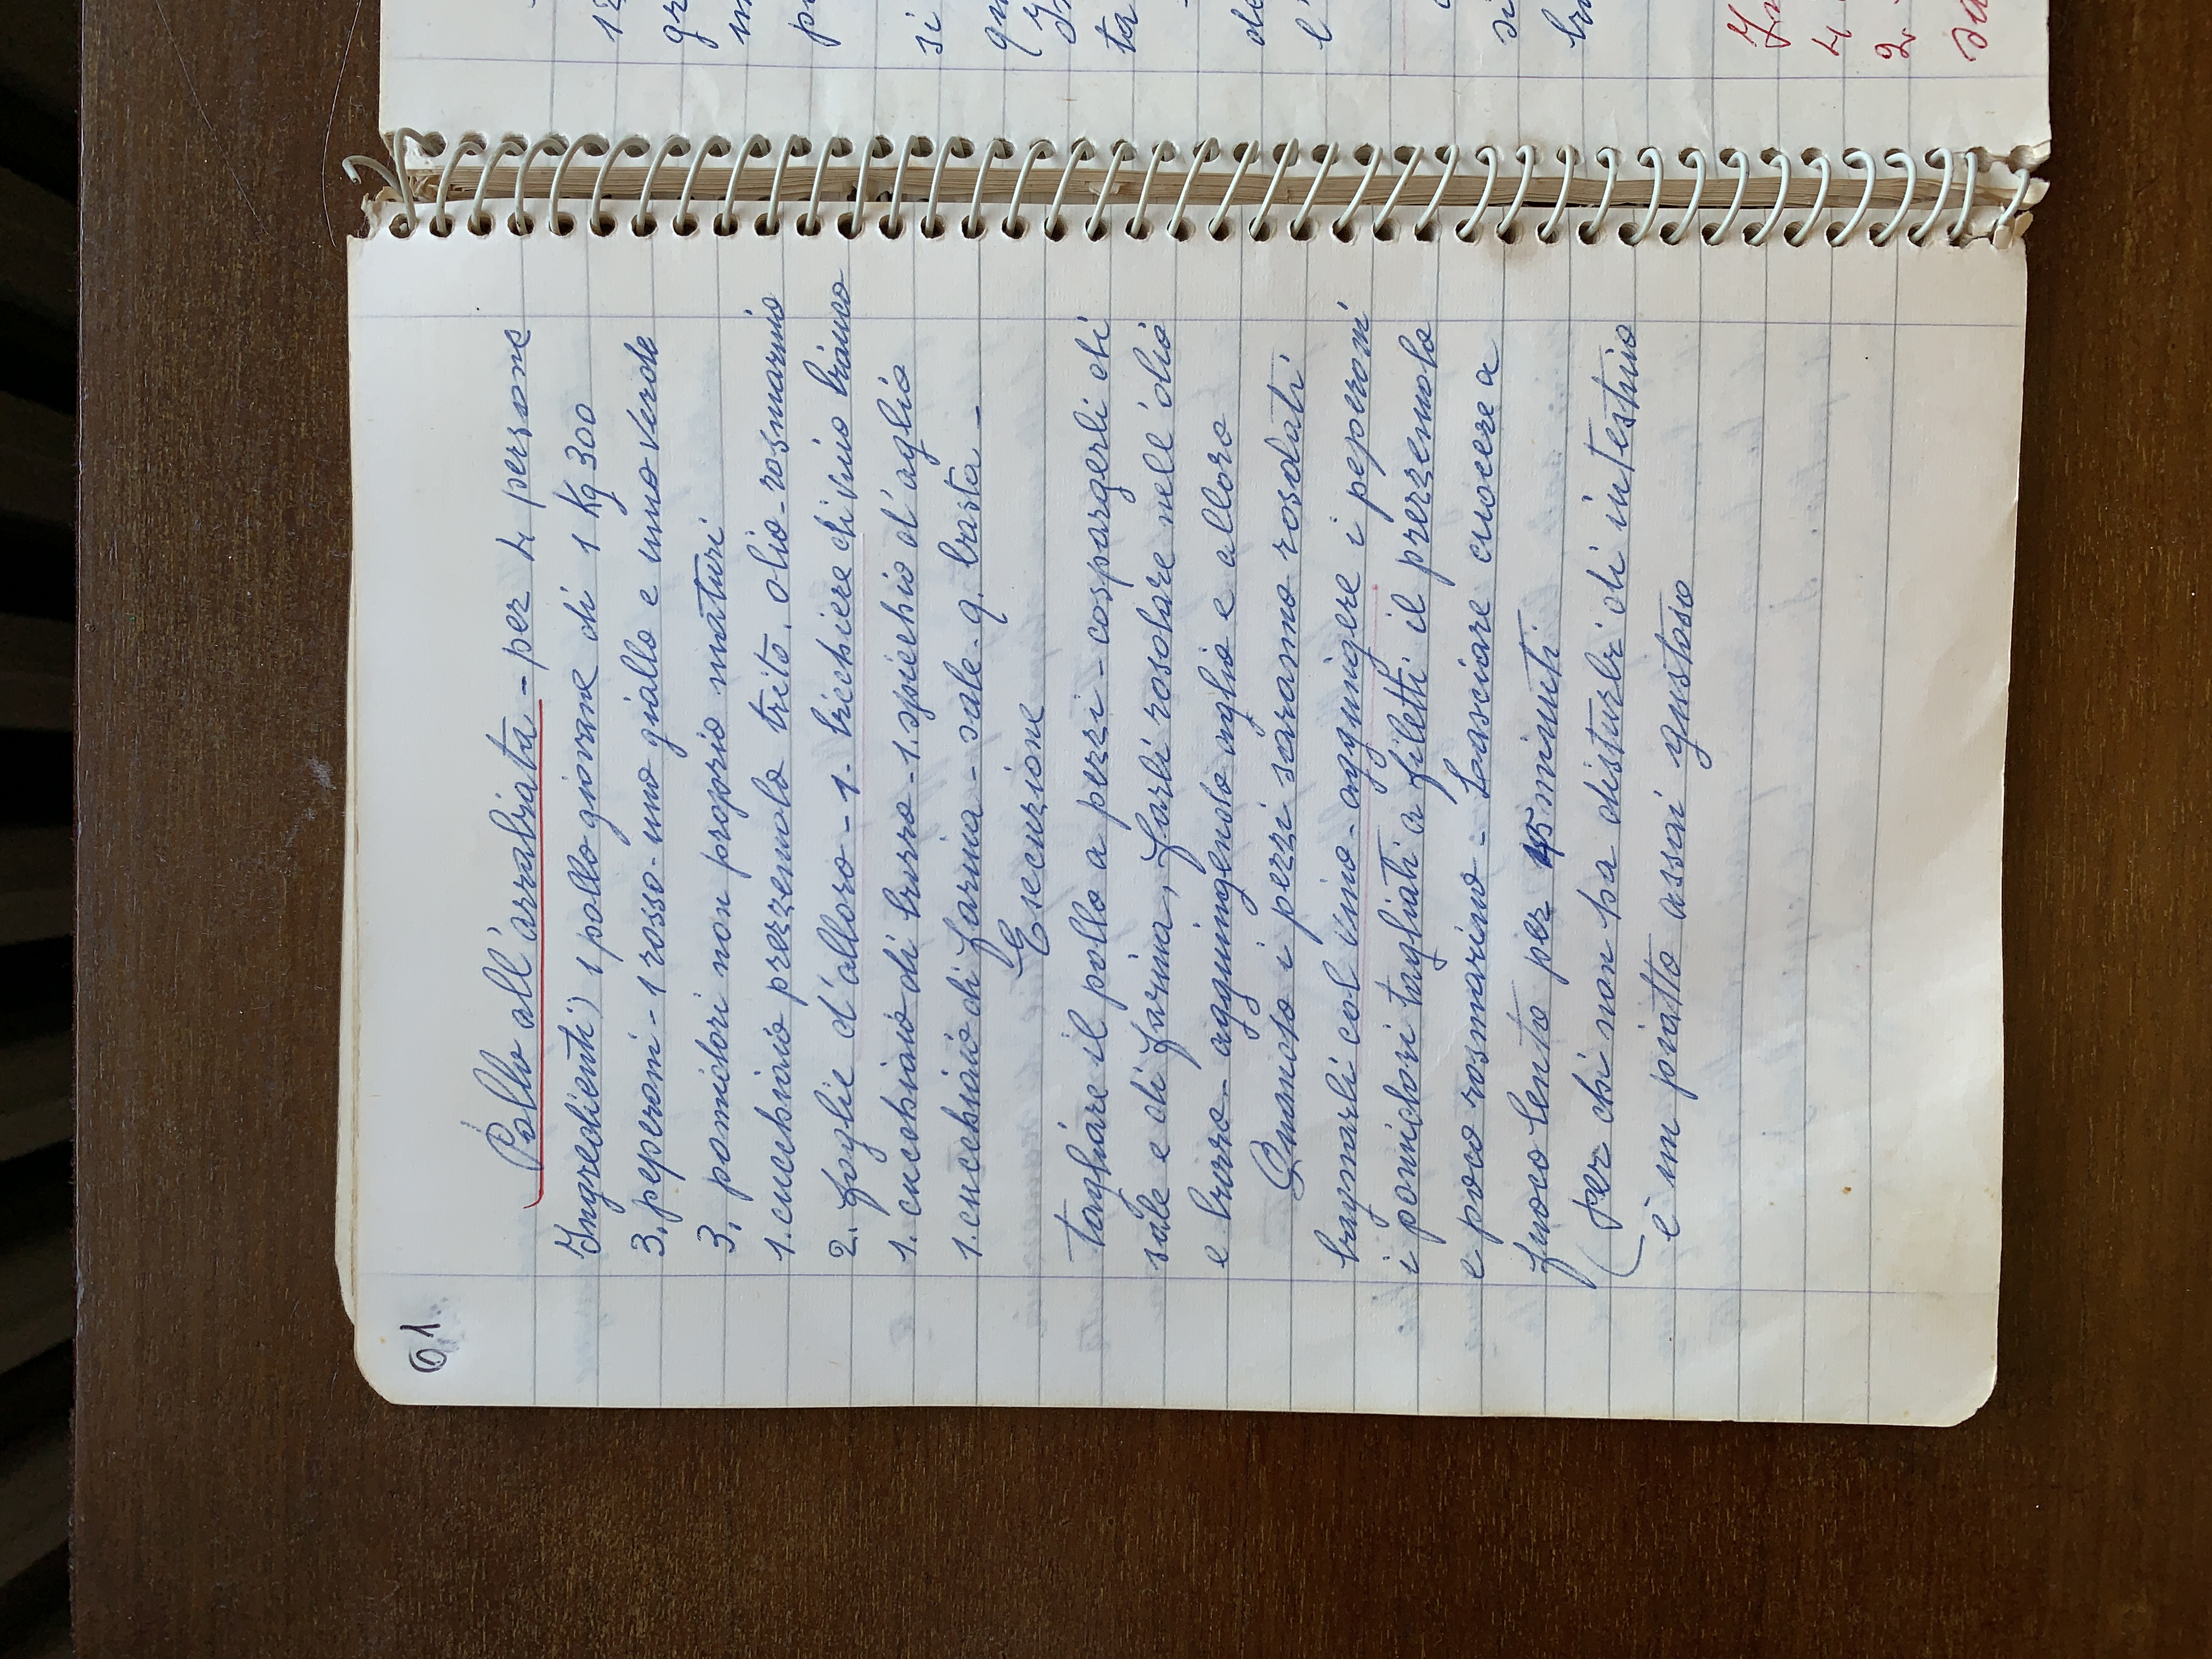 61.
Pollo all'arrabiata - per 4 persone
Ingredienti) 1 pollo giovane di 1 Kg 300
3. peperoni - 1 rosso - uno giallo e uno verde
3, pomidori non proprio maturi
1. cucchiaio prezzemolo trito. olio - rosmarino
2. foglie d'alloro - 1. bicchiere di vino bianco
1. cucchiaio di burro - 1. spicchio d'aglio
1. cucchiaio di farina - sale - q. basta -
Esecuzione
tagliare il pollo a pezzi - cospargerli di
sale e di farina, farli rosolare nell'olio
e burro - aggiungendo aglio e alloro
Quando i pezzi saranno rosolati
bagnarli col vino - aggiungere i peperoni
i pomidori tagliati a filetti il prezzemolo
e poco rosmarino - Lasciare cuocere a
fuoco lento per 45 minuti
(per chi non ha disturbi di intestino
è un piatto assai gustoso
12
gr
m
pr
si
qu
In
ta
de
l'
si
br
In
4
2
sa